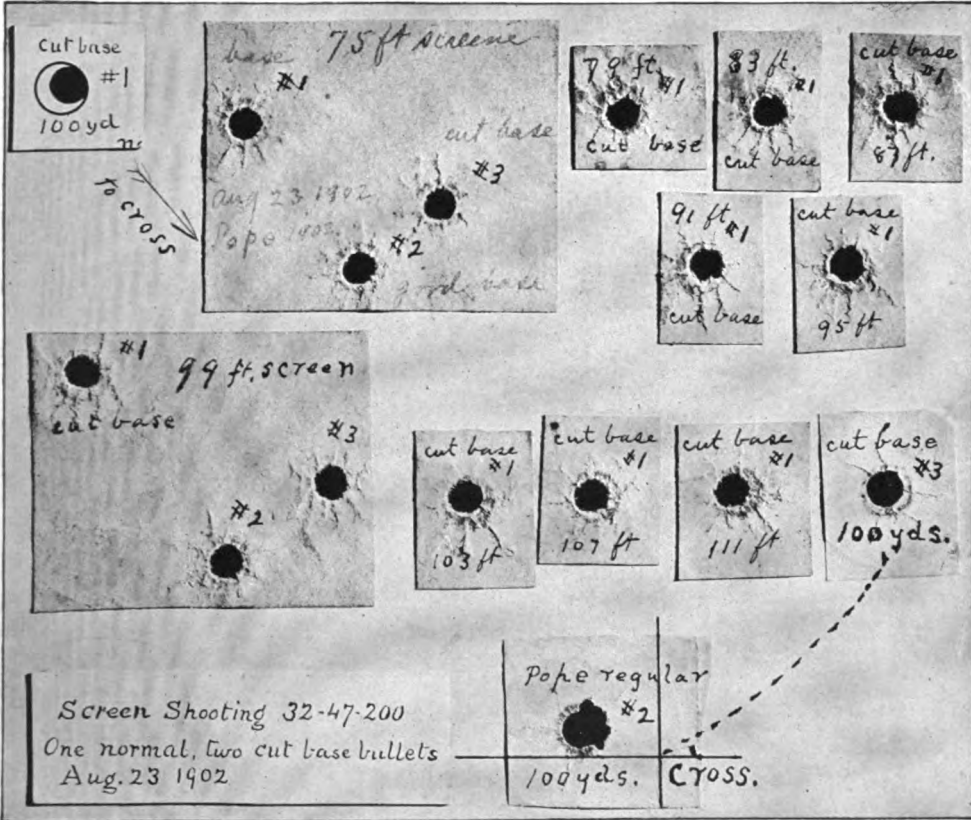 cut base
#1
100yd
n.
to cross
75 ft screene
base
#1
cut base
#3
Aug 23 1902
Pope 1902.
#2
good base
79 ft.
#1
cut base
83 ft.
#1
cut base
cut base
#1
87 ft.
91 ft
#1
cut base
cut base
#1
95 ft
#1
99 ft. screen
cut base
#3
#2
cut base
#1
103 ft
cut base
#1
107 ft
cut base
#1
111 ft
cut base
#3
100 yds.
Pope regular
#2
100 yds.
Cross.
Screen Shooting 32-47-200
One normal, two cut base bullets
Aug. 23 1902